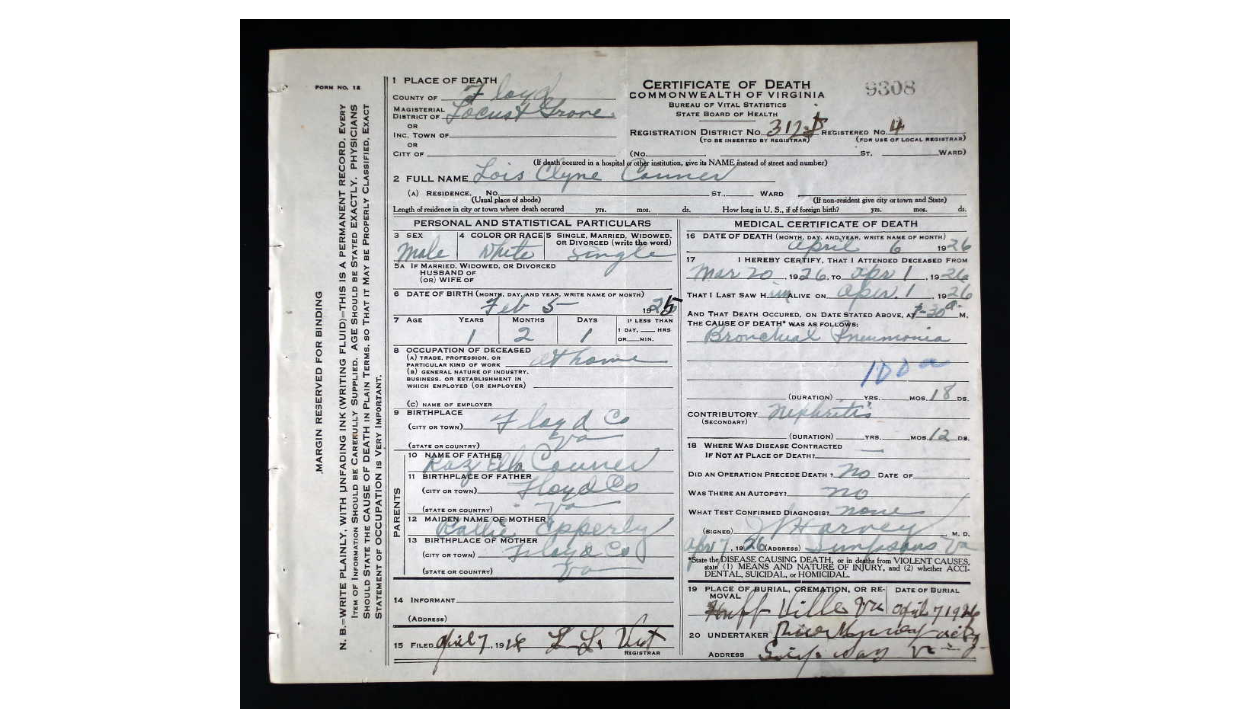 FORM NO. 12
MARGIN RESERVED FOR BINDING
N. B.—WRITE PLAINLY, WITH UNFADING INK (WRITING FLUID)—THIS IS A PERMANENT RECORD. EVERY
ITEM OF INFORMATION SHOULD BE CAREFULLY SUPPLIED. AGE SHOULD BE STATED EXACTLY. PHYSICIANS
SHOULD STATE THE CAUSE OF DEATH IN PLAIN TERMS, SO THAT IT MAY BE PROPERLY CLASSIFIED. EXACT
STATEMENT OF OCCUPATION IS VERY IMPORTANT.
1 PLACE OF DEATH
COUNTY OF Floyd
MAGISTERIAL
DISTRICT OF Locust Grove
OR
INC. TOWN OF
OR
CITY OF
CERTIFICATE OF DEATH
COMMONWEALTH OF VIRGINIA
BUREAU OF VITAL STATISTICS
STATE BOARD OF HEALTH
9308
REGISTRATION DISTRICT NO. REGISTERED NO. 4
(TO BE INSERTED BY REGISTRAR) (FOR USE OF LOCAL REGISTRAR)
(NO. ST. WARD)
(If death occured in a hospital or other institution, give its NAME instead of street and number)
2 FULL NAME Lois Clyne Conner
(A) RESIDENCE. NO. ST. WARD
(Usual place of abode) (If non-resident give city or town and State)
Length of residence in city or town where death occured yrs. mos. ds. How long in U. S., if of foreign birth? yrs. mos. ds.
PERSONAL AND STATISTICAL PARTICULARS
3 SEX 4 COLOR OR RACE 5 SINGLE, MARRIED, WIDOWED,
OR DIVORCED (write the word)
Male White Single
5A IF MARRIED, WIDOWED, OR DIVORCED
HUSBAND OF
(OR) WIFE OF
6 DATE OF BIRTH (MONTH, DAY, AND YEAR, WRITE NAME OF MONTH)
Feb 5 1925
7 AGE YEARS MONTHS DAYS IF LESS THAN
1 DAY, HRS
OR MIN.
1 2 1
8 OCCUPATION OF DECEASED
(A) TRADE, PROFESSION, OR
PARTICULAR KIND OF WORK at home
(B) GENERAL NATURE OF INDUSTRY,
BUSINESS, OR ESTABLISHMENT IN
WHICH EMPLOYED (OR EMPLOYER)
(C) NAME OF EMPLOYER
9 BIRTHPLACE
(CITY OR TOWN) Floyd Co
(STATE OR COUNTRY) Va
PARENTS
10 NAME OF FATHER
Conner
11 BIRTHPLACE OF FATHER
(CITY OR TOWN) Floyd Co
(STATE OR COUNTRY) Va
12 MAIDEN NAME OF MOTHER
Epperly
13 BIRTHPLACE OF MOTHER
(CITY OR TOWN) Floyd Co
(STATE OR COUNTRY) Va
14 INFORMANT
(ADDRESS)
15 FILED April 7, 19 L. L.
REGISTRAR
MEDICAL CERTIFICATE OF DEATH
16 DATE OF DEATH (MONTH, DAY, AND YEAR, WRITE NAME OF MONTH)
April 6 1926
17 I HEREBY CERTIFY, THAT I ATTENDED DECEASED FROM
Mar 20, 1926, TO Apr 1, 1926
THAT I LAST SAW HIM ALIVE ON Aper. 1, 1926
AND THAT DEATH OCCURED, ON DATE STATED ABOVE, AT M.
THE CAUSE OF DEATH* WAS AS FOLLOWS:
Bronchial Pneumonia
100 a
(DURATION) YRS. MOS. 18 DS.
CONTRIBUTORY Nephritis
(SECONDARY)
(DURATION) YRS. MOS. 12 DS.
18 WHERE WAS DISEASE CONTRACTED
IF NOT AT PLACE OF DEATH?
DID AN OPERATION PRECEDE DEATH? No DATE OF
WAS THERE AN AUTOPSY? no
WHAT TEST CONFIRMED DIAGNOSIS? none
(SIGNED) Harvey M. D.
Apr 7, 1926 (ADDRESS) Simpsons Va
*State the DISEASE CAUSING DEATH, or in deaths from VIOLENT CAUSES,
state (1) MEANS AND NATURE OF INJURY, and (2) whether ACCI-
DENTAL, SUICIDAL, or HOMICIDAL.
19 PLACE OF BURIAL, CREMATION, OR RE- DATE OF BURIAL
MOVAL
Huff Ville Va April 7 1926
20 UNDERTAKER
ADDRESS